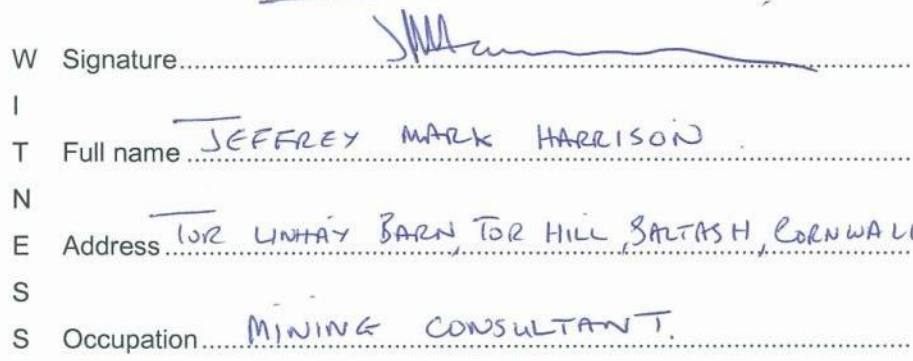 W Signature
I
T Full name JEFFREY MARK HARRISON
N
E Address TOR LINHAY BARN, TOR HILL, SALTASH, CORNWALL
S
S Occupation MINING CONSULTANT.